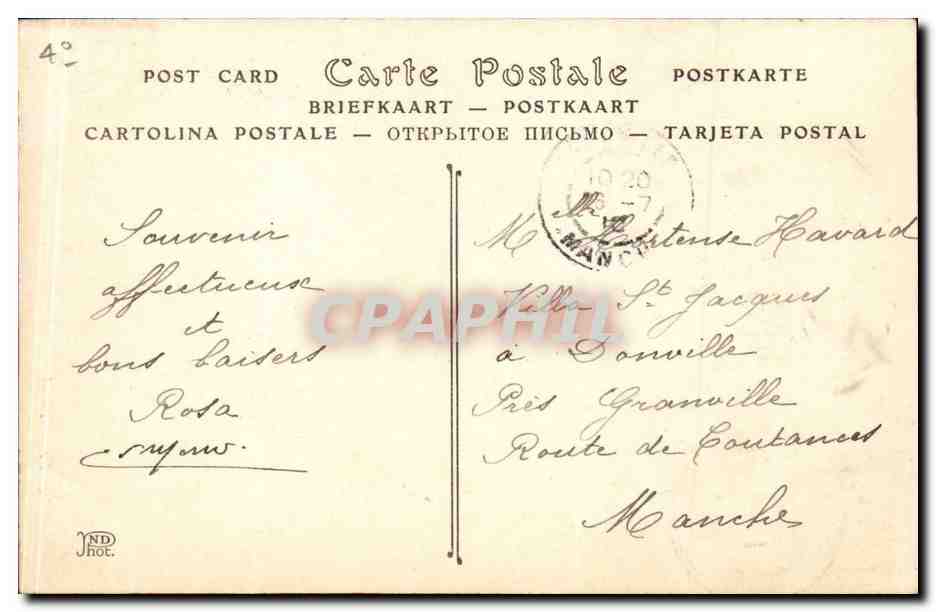 4º
POST CARD Carte Postale POSTKARTE
BRIEFKAART — POSTKAART
CARTOLINA POSTALE — ОТКРЫТОЕ ПИСЬМО — TARJETA POSTAL
Souvenir
affectueux
et
bons baisers
Rosa
ND Phot.
10 20
6 -7
MANCHE
M Hortense Havard
Villa St Jacques
à Donville
Près Granville
Route de Coutances
Manche
CPAPHIL